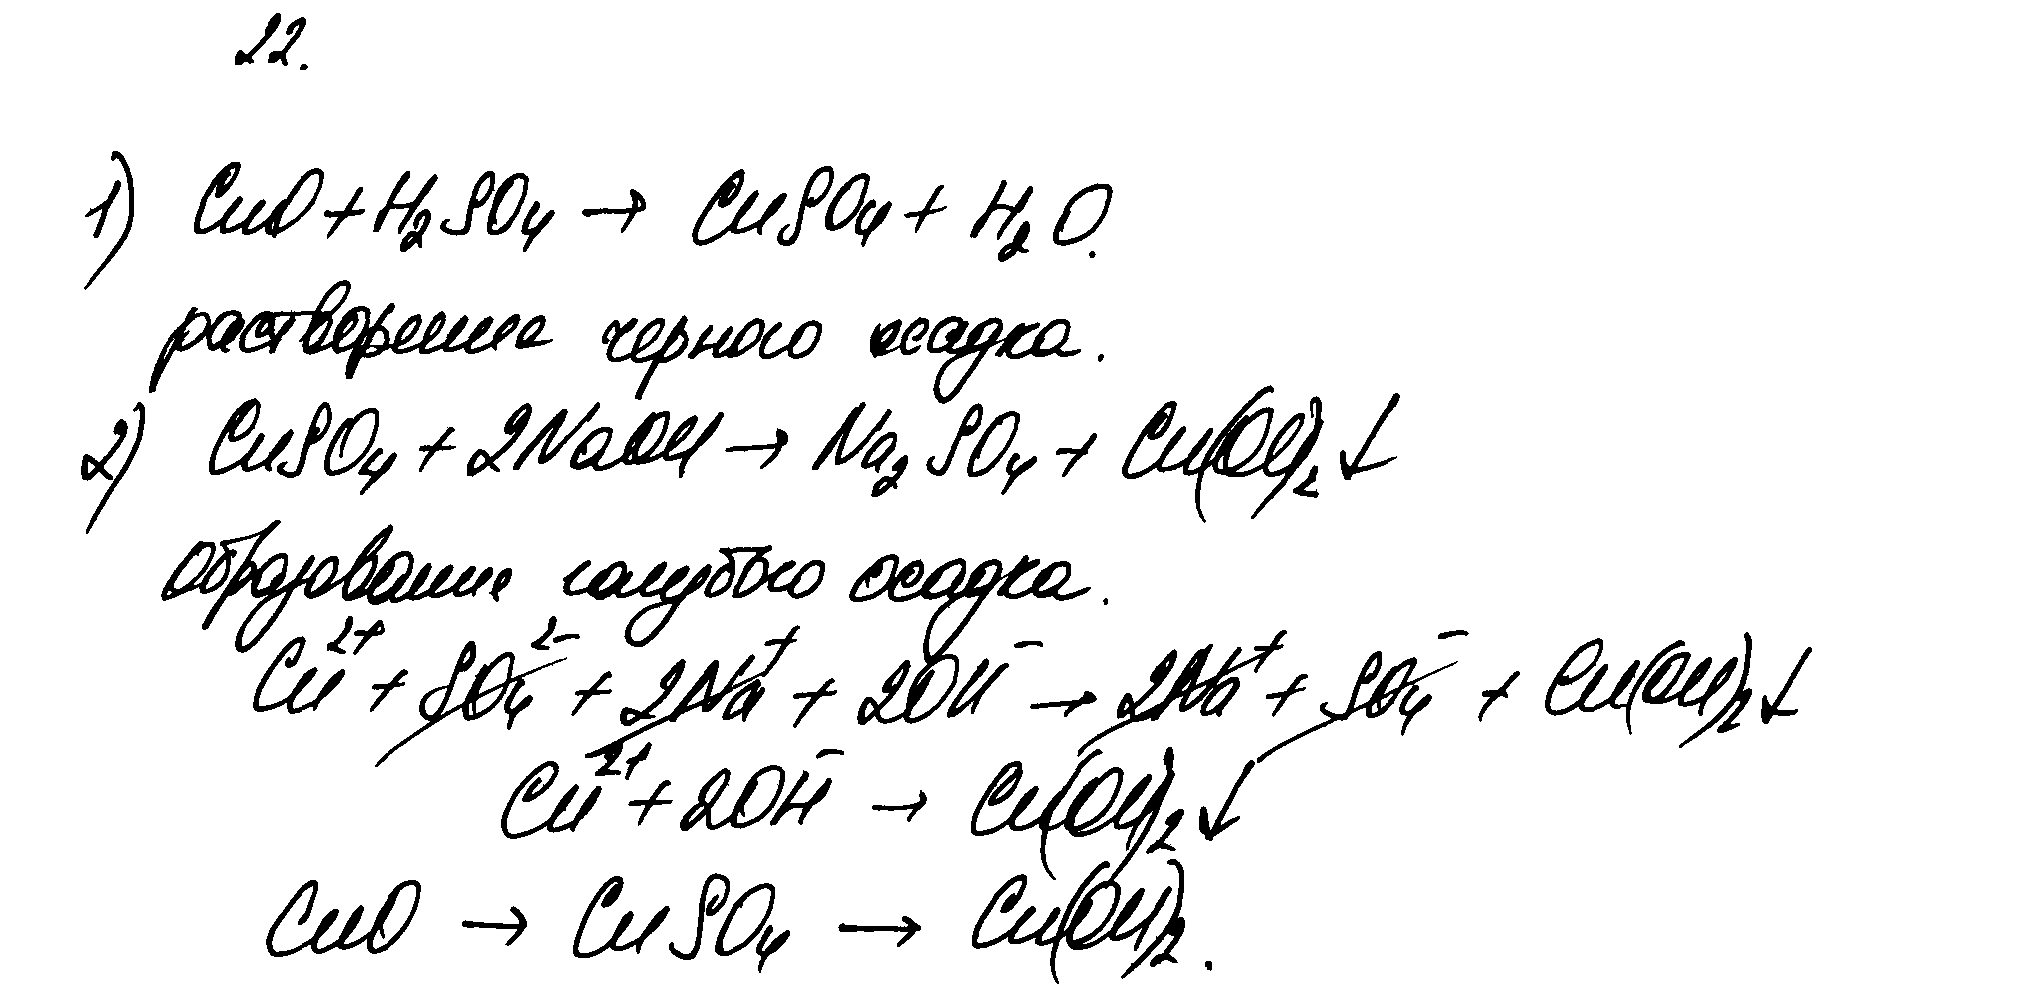 22.
1) CuO + H₂SO₄ → CuSO₄ + H₂O.
растворение черного осадка.
2) CuSO₄ + 2NaOH → Na₂SO₄ + Cu(OH)₂↓
образование голубого осадка.
Cu²⁺ + SO₄²⁻ + 2Na⁺ + 2OH⁻ → 2Na⁺ + SO₄⁻ + Cu(OH)₂↓
Cu²⁺ + 2OH⁻ → Cu(OH)₂↓
CuO → CuSO₄ → Cu(OH)₂.